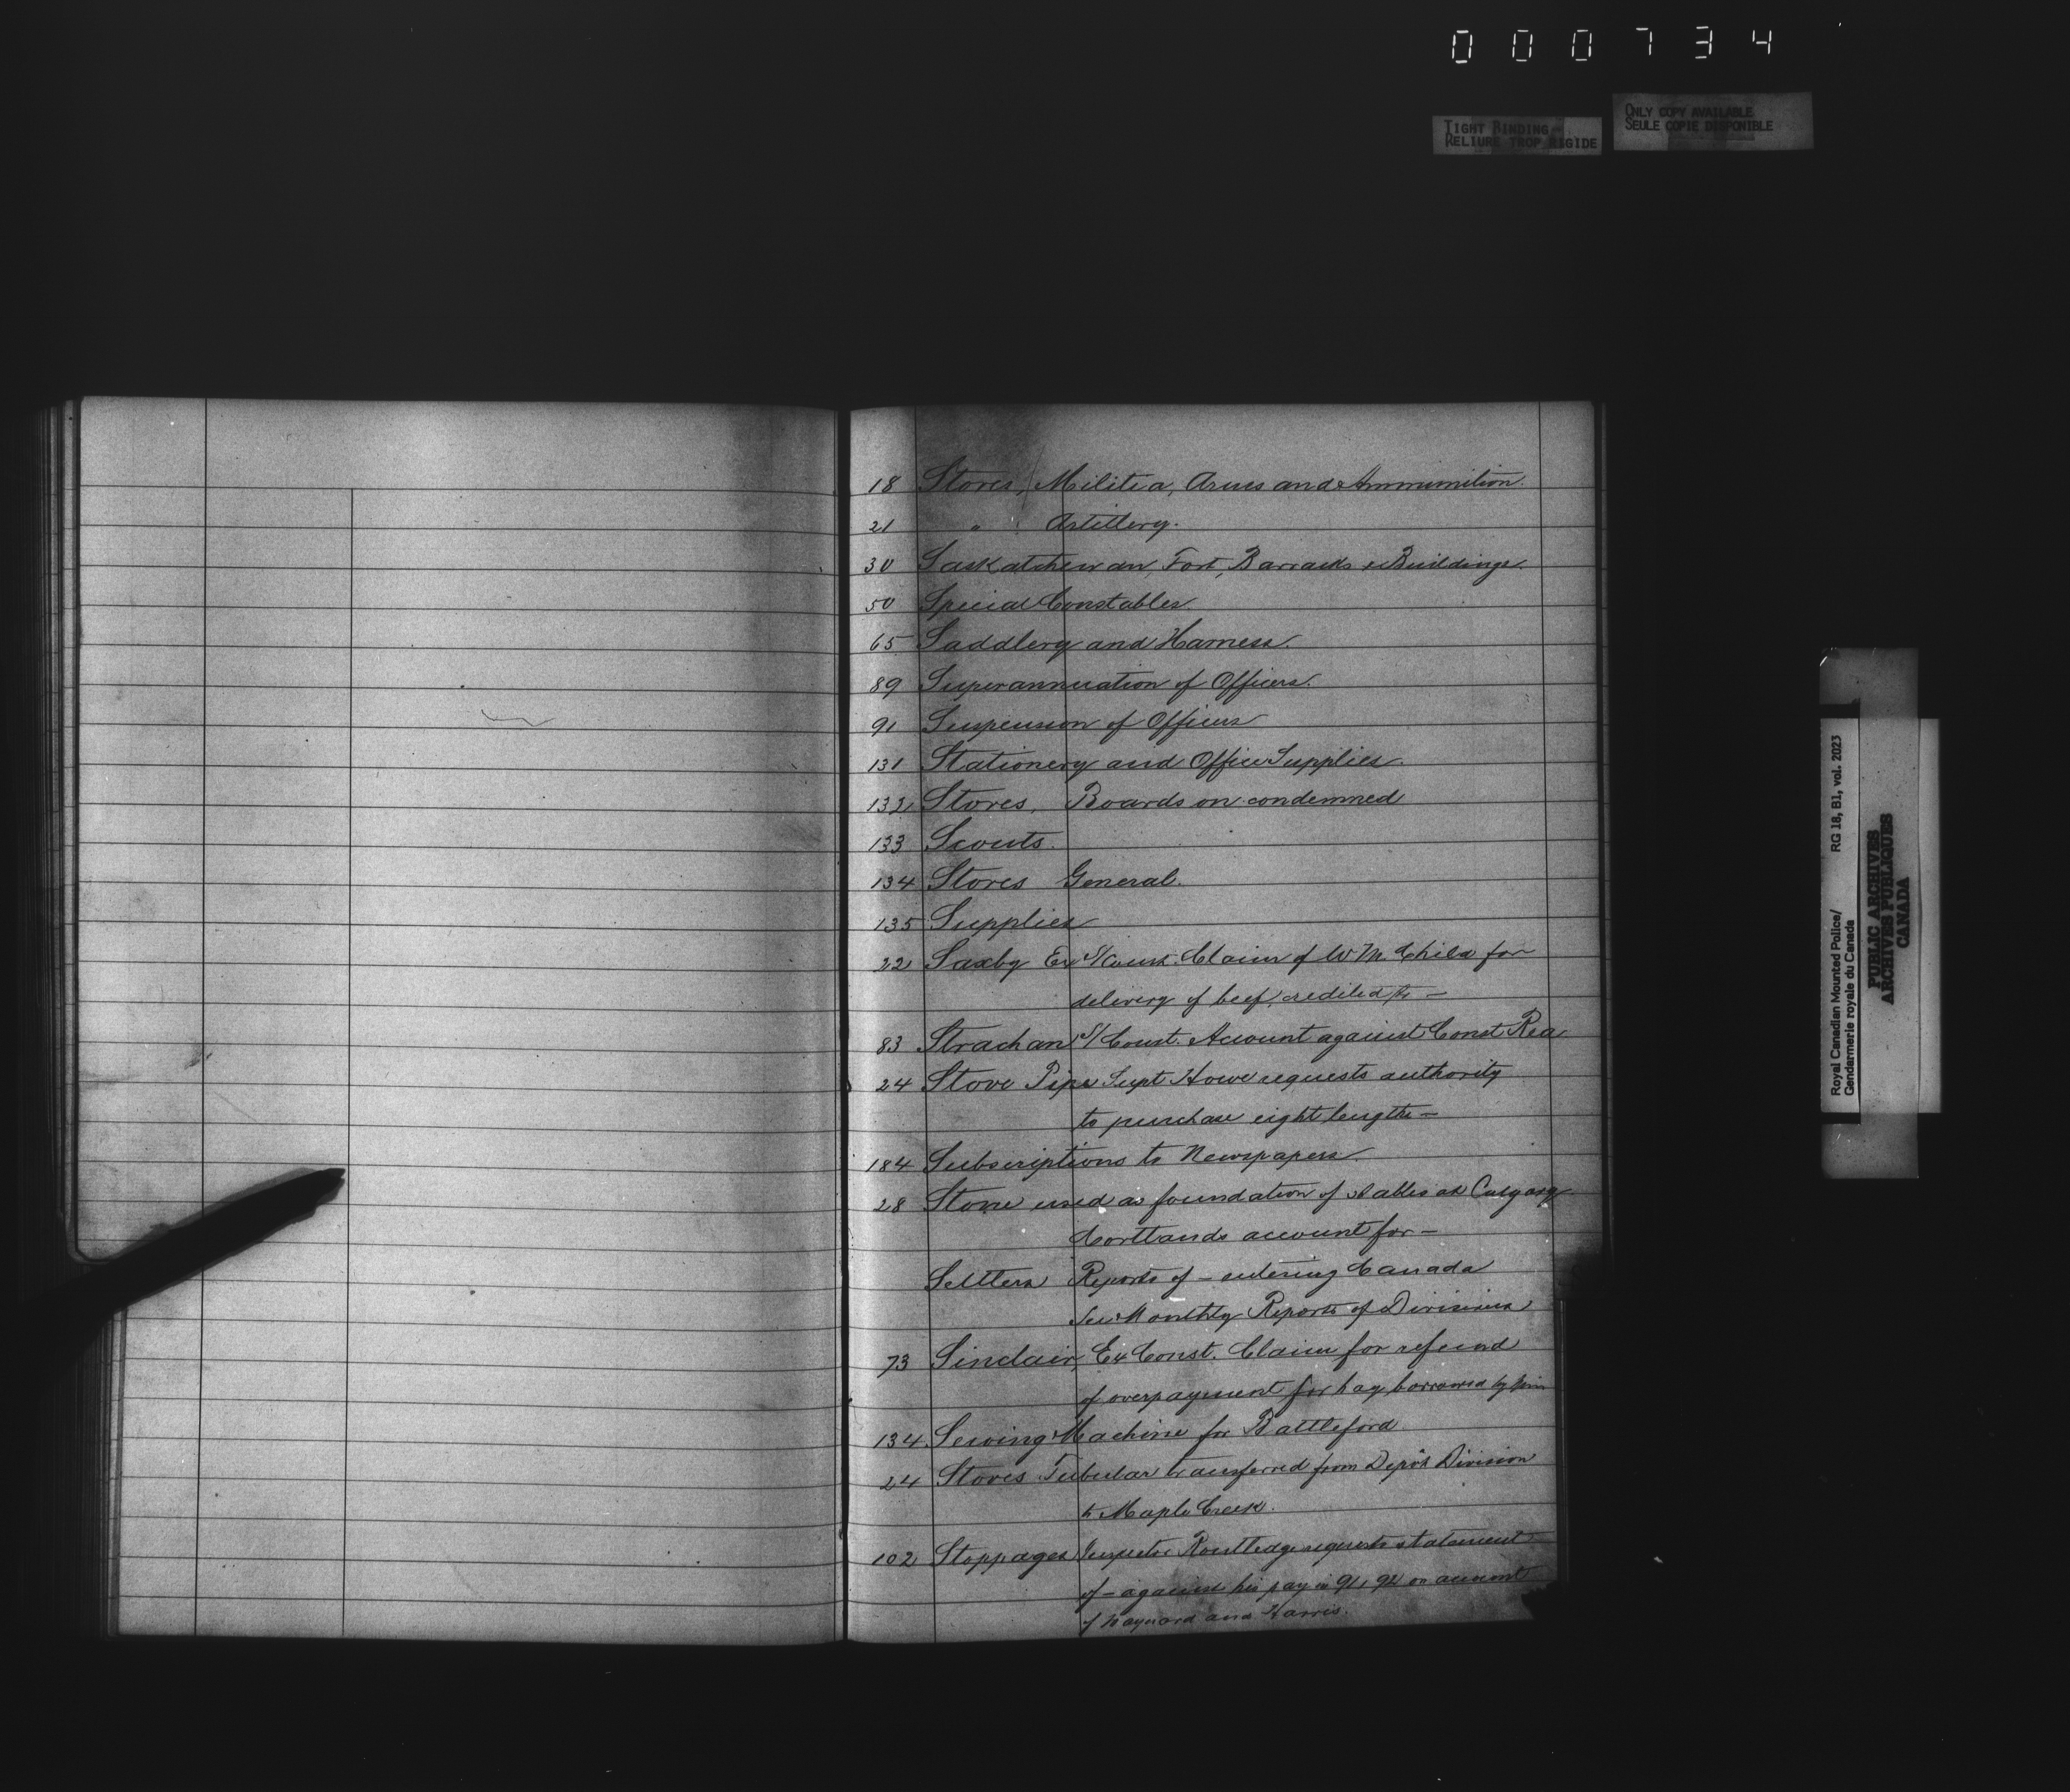 000734
TIGHT BINDING
RELIURE TROP RIGIDE
ONLY COPY AVAILABLE
SEULE COPIE DISPONIBLE
18 Stores, Militia, Arms and Ammunition.
21 " Artillery.
30 Saskatchewan, Fort, Barracks & Buildings.
50 Special Constables.
65 Saddlery and Harness.
89 Superannuation of Officers.
91 Suspension of Officers
131 Stationery and Office Supplies.
132 Stores, Boards on condemned
133 Scouts.
134 Stores General.
135 Supplies
22 Saxby Ex S/Const. Claim of W. M. Child for
delivery of beef, credited to —
83 Strachan S/Const. Account against Const Rea
24 Stove Pipe Supt Howe requests authority
to purchase eight lengths —
184 Subscriptions to Newspapers.
28 Stone used as foundation of stables at Calgary
Cortlands account for —
Settlers Reports of — entering Canada
See Monthly Reports of Divisions
73 Sinclair, Ex Const. Claim for refund
of overpayment for hay borrowed by him
134 Sewing Machine for Battleford
24 Stoves Tubular transferred from Depôt Division
to Maple Creek.
102 Stoppages Inspector Routledge requests statement
of — against his pay in 91, 92 on account
of and Harris.
Royal Canadian Mounted Police/ RG 18, B1, vol. 2023
Gendarmerie royale du Canada
PUBLIC ARCHIVES
ARCHIVES PUBLIQUES
CANADA